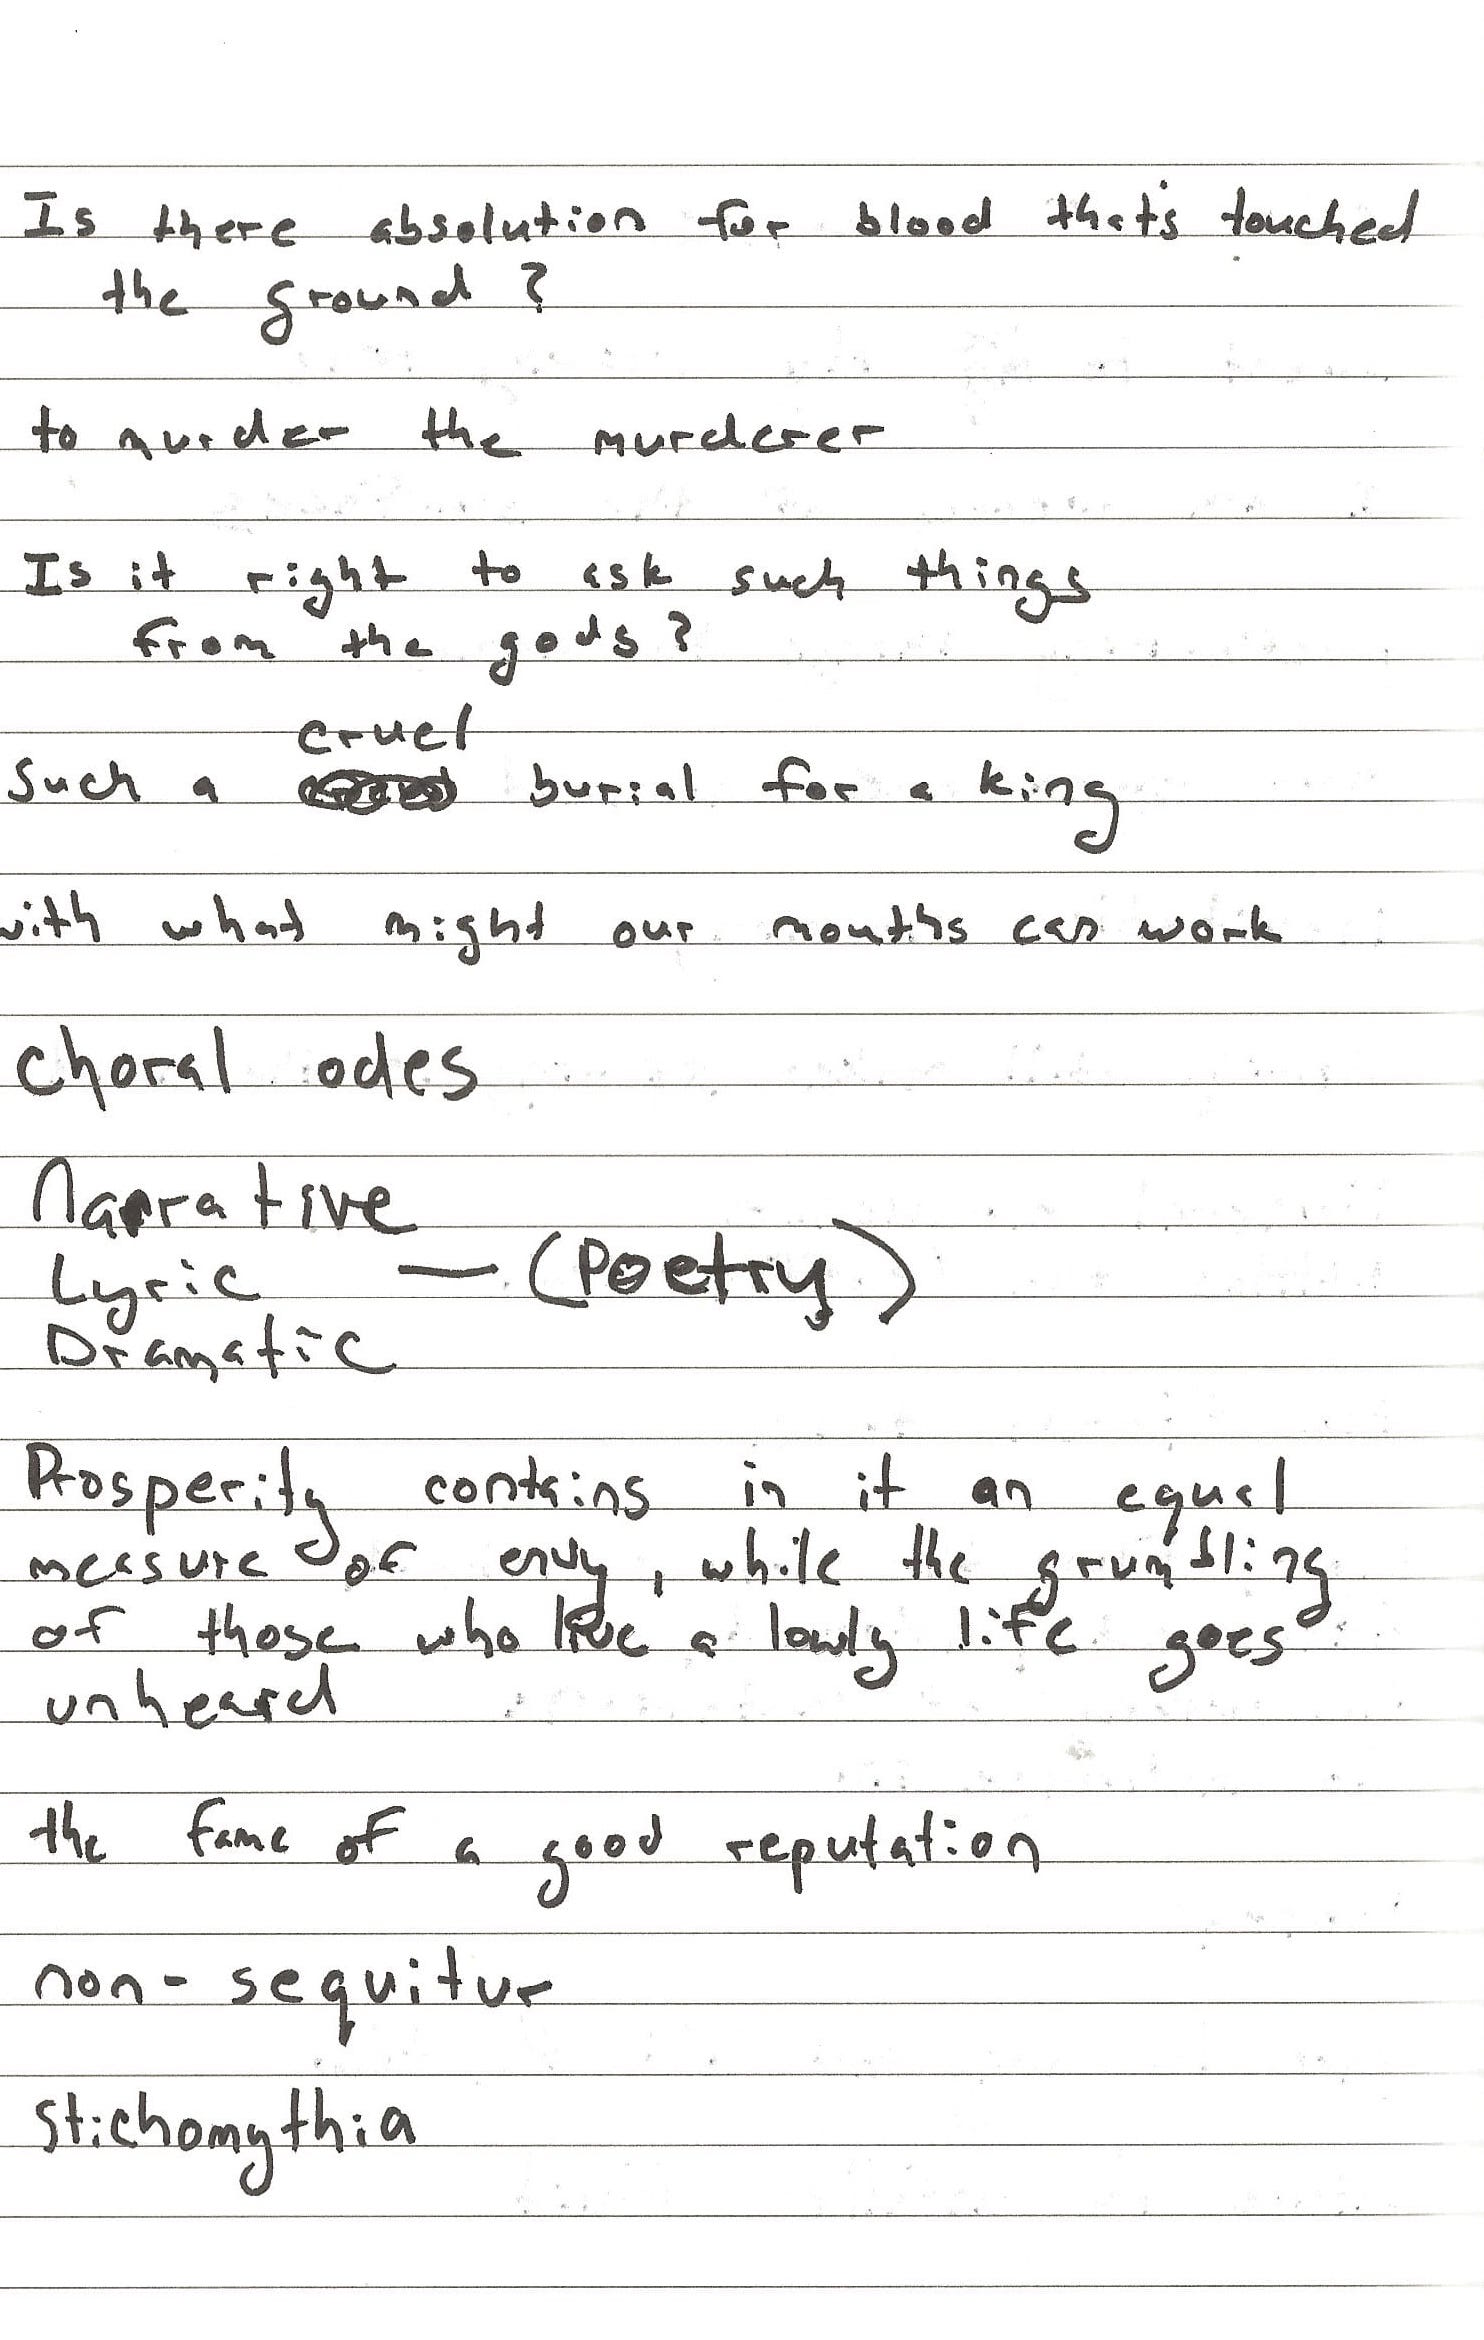 Is there absolution for blood that's touched
the ground?
to murder the murderer
Is it right to ask such things
from the gods?
cruel
Such a burial for a king
with what might our mouths can work
Choral odes
Narrative
Lyric — (Poetry)
Dramatic
Prosperity contains in it an equal
measure of envy, while the grumbling
of those who live a lowly life goes
unheard
the fame of a good reputation
non-sequitur
Stichomythia